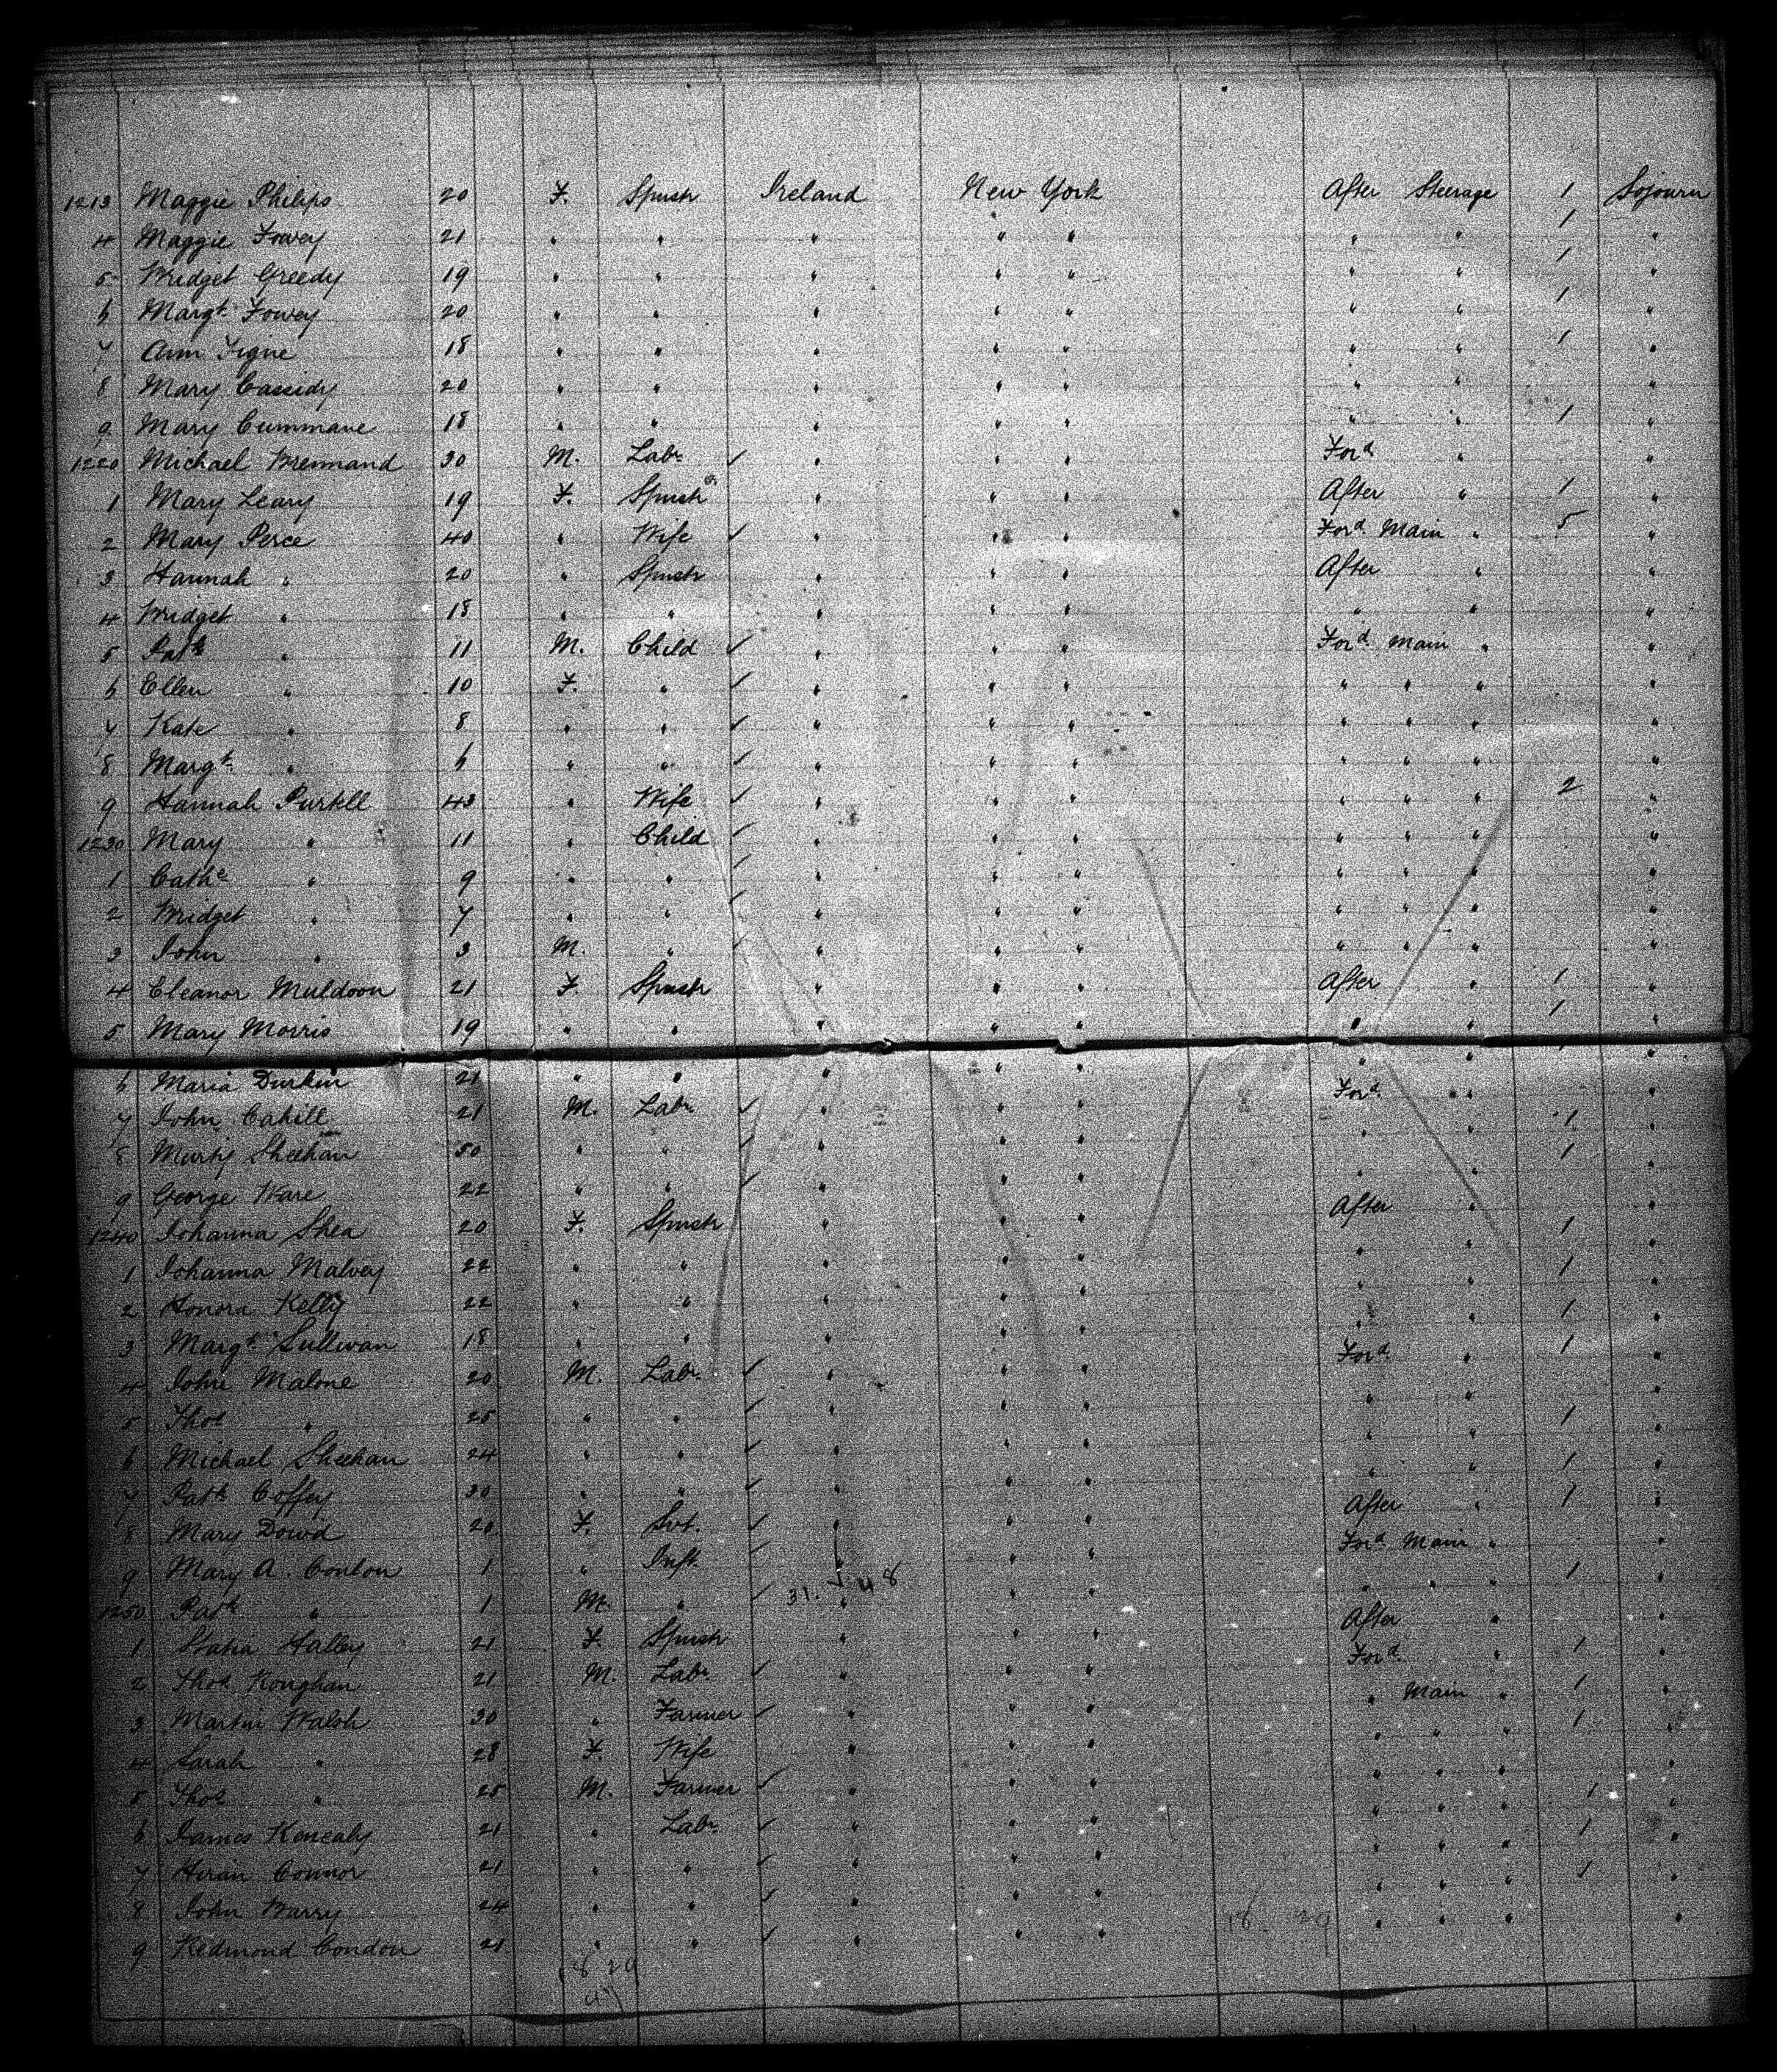 1213 Maggie Philips 20 F. Spinstr Ireland New York After Steerage 1 Sojourn
4 Maggie Fowey 21 " " " " " " " 1 "
5 Bridget Greedy 19 " " " " " " " 1 "
6 Margt. Fowey 20 " " " " " " " 1 "
7 Ann Tigne 18 " " " " " " " 1 "
8 Mary Cassidy 20 " " " " " " " "
9 Mary Cummane 18 " " " " " " " 1 "
1220 Michael Brennand 30 M. Labr ✓ " " " Ford " "
1 Mary Leary 19 F. Spinstr " " " After " 1 "
2 Mary Perce 40 " Wife ✓ " " " Ford. Main " 5 "
3 Hannah " 20 " Spinstr " " " After " "
4 Bridget " 18 " " " " " " " "
5 Patk " 11 M. Child ✓ " " " Ford. Main " "
6 Ellen " 10 F. " ✓ " " " " " " "
7 Kate " 8 " " ✓ " " " " " " "
8 Margt. " 6 " " ✓ " " " " " " "
9 Hannah Purtell 43 " Wife ✓ " " " " " " 2 "
1230 Mary " 11 " Child ✓ " " " " " " "
1 Cathe " 9 " " ✓ " " " " " " "
2 Bridget " 7 " " ✓ " " " " " " "
3 John " 3 M. " ✓ " " " " " " "
4 Eleanor Muldoon 21 F. Spinstr " " " After " 1 "
5 Mary Morris 19 " " " " " " " 1 "
6 Maria Durkin 21 " " " " " " "
7 John Cahill 21 M. Labr ✓ " " " Ford. " "
8 Murty Sheehan 50 " " ✓ " " " " " 1 "
9 George Ware 22 " " ✓ " " " " " 1 "
1240 Johanna Shea 20 F. Spinstr " " " After " "
1 Johanna Malvey 22 " " " " " " " 1 "
2 Honora Kelly 22 " " " " " " " 1 "
3 Margt. Sullivan 18 " " " " " " " 1 "
4 John Malone 20 M. Labr. ✓ " " " Ford. " 1 "
5 Thos " 25 " " ✓ " " " " " "
6 Michael Sheehan 24 " " ✓ " " " " " 1 "
7 Patk Coffey 30 " " ✓ " " " " " 1 "
8 Mary Dowd 20 F. Svt. ✓ " " " After " 1 "
9 Mary A. Conlon 1 " Inft. ✓ " " " Ford Main "
1250 Patk " 1 M. " ✓ " " " " " " 1 "
1 Statia Halley 21 F. Spinstr " " " After " "
2 Thos Roughan 21 M. Labr ✓ " " " Ford. " 1 "
3 Martin Walsh 30 " Farmer ✓ " " " " Main " 1 "
4 Sarah " 28 F. Wife " " " " " " 1 "
5 Thos " 25 M. Farmer ✓ " " " " " " "
6 James Kenealy 21 " Labr. ✓ " " " " " " 1 "
7 Hiran Connor 21 " " ✓ " " " " " " 1 "
8 John Barry 24 " " ✓ " " " " " " 1 "
9 Redmond Condon 21 " " ✓ " " " " " " "